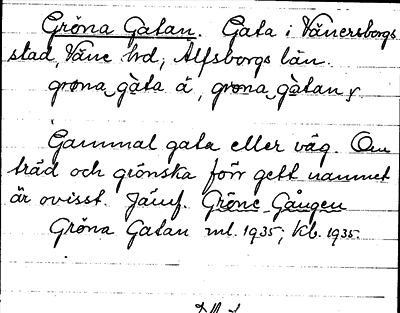 Gröna Gatan. Gata i Vänersborgs
stad, Väne hd, Älfsborgs län.
grøna gàta ä, grøna gàtan
Gammal gata eller väg. Om
träd och grönska förr gett namnet
är ovisst. Jämf. Gröne Gången
Gröna Gatan ml. 1935; Kb. 1935.